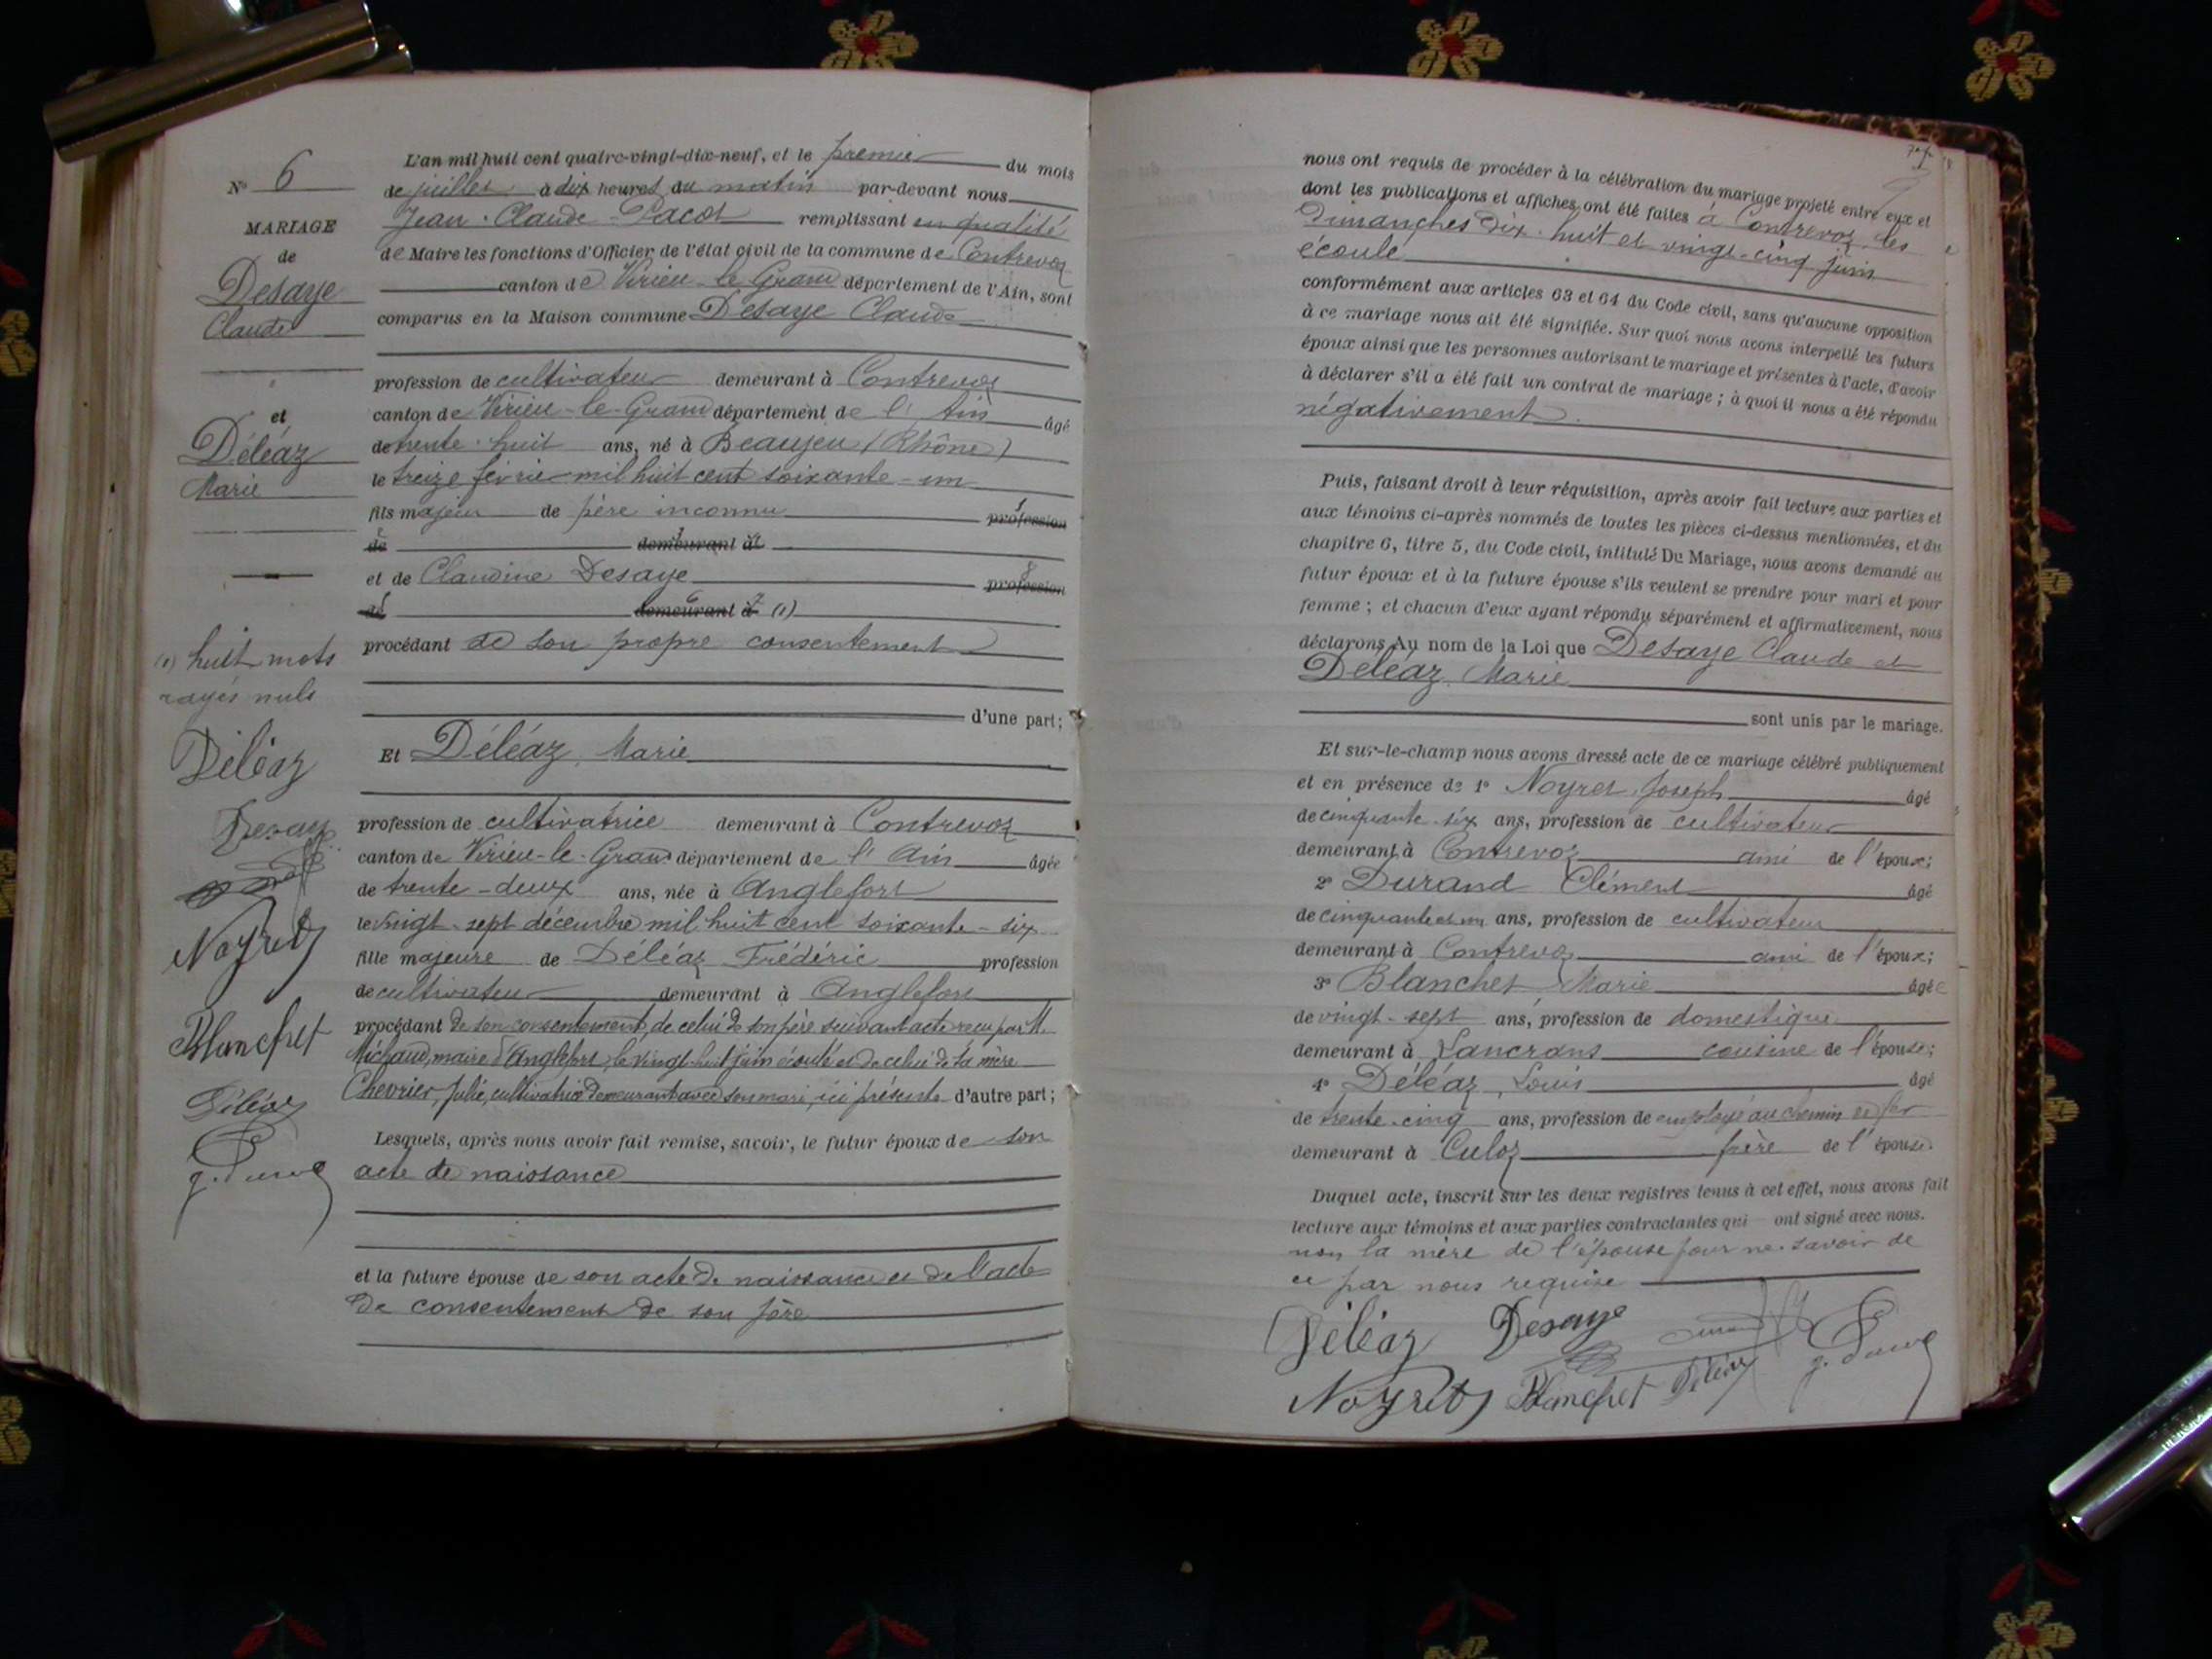 N° 6
MARIAGE
de
Desaye
Claude
et
Déléaz
Marie
(1) huit mots
rayés nuls
Déléaz
Desaye
Noyret
Blanchet
Déléaz
L'an mil huit cent quatre-vingt-dix-neuf, et le premier du mois
de juillet à dix heures du matin par-devant nous
Jean-Claude Pacot remplissant en qualité
de Maire les fonctions d'Officier de l'état civil de la commune de Contrevoz
canton de Virieu-le-Grand département de l'Ain, sont
comparus en la Maison commune Desaye Claude
profession de cultivateur demeurant à Contrevoz
canton de Virieu-le-Grand département de l'Ain âgé
de trente-huit ans, né à Beaujeu (Rhône)
le treize février mil huit cent soixante-un
fils majeur de père inconnu profession
de demeurant à
et de Claudine Desaye profession
de demeurant à (1)
procédant de son propre consentement
d'une part;
Et Déléaz, Marie
profession de cultivatrice demeurant à Contrevoz
canton de Virieu-le-Grand département de l'Ain âgée
de trente-deux ans, née à Anglefort
le vingt-sept décembre mil huit cent soixante-six
fille majeure de Déléaz Frédéric profession
de cultivateur demeurant à Anglefort
procédant de son consentement, de celui de son père suivant acte reçu par M.
Michaud, maire d'Anglefort, le vingt-huit juin écoulé et de celui de sa mère
Chevrier, Julie, cultivatrice demeurant avec son mari, ici présente d'autre part;
Lesquels, après nous avoir fait remise, savoir, le futur époux de son
acte de naissance
et la future épouse de son acte de naissance et de l'acte
de consentement de son père
nous ont requis de procéder à la célébration du mariage projeté entre eux et
dont les publications et affiches ont été faites à Contrevoz les
Dimanches dix-huit et vingt-cinq juin
écoulé
conformément aux articles 63 et 64 du Code civil, sans qu'aucune opposition
à ce mariage nous ait été signifiée. Sur quoi nous avons interpellé les futurs
époux ainsi que les personnes autorisant le mariage et présentes à l'acte, d'avoir
à déclarer s'il a été fait un contrat de mariage; à quoi il nous a été répondu
négativement.
Puis, faisant droit à leur réquisition, après avoir fait lecture aux parties et
aux témoins ci-après nommés de toutes les pièces ci-dessus mentionnées, et du
chapitre 6, titre 5, du Code civil, intitulé Du Mariage, nous avons demandé au
futur époux et à la future épouse s'ils veulent se prendre pour mari et pour
femme; et chacun d'eux ayant répondu séparément et affirmativement, nous
déclarons Au nom de la Loi que Desaye Claude et
Déléaz Marie
sont unis par le mariage.
Et sur-le-champ nous avons dressé acte de ce mariage célébré publiquement
et en présence de 1° Noyret Joseph âgé
de cinquante-six ans, profession de cultivateur
demeurant à Contrevoz ami de l'époux;
2° Durand Clément âgé
de cinquante et un ans, profession de cultivateur
demeurant à Contrevoz ami de l'époux;
3° Blanchet Marie âgée
de vingt-sept ans, profession de domestique
demeurant à Lancrans cousine de l'épouse;
4° Déléaz, Louis âgé
de trente-cinq ans, profession de employé au chemin de fer
demeurant à Culoz frère de l'épouse.
Duquel acte, inscrit sur les deux registres tenus à cet effet, nous avons fait
lecture aux témoins et aux parties contractantes qui ont signé avec nous.
non la mère de l'épouse pour ne savoir de
ce par nous requise
Déléaz Desaye
Noyret Blanchet Déléaz